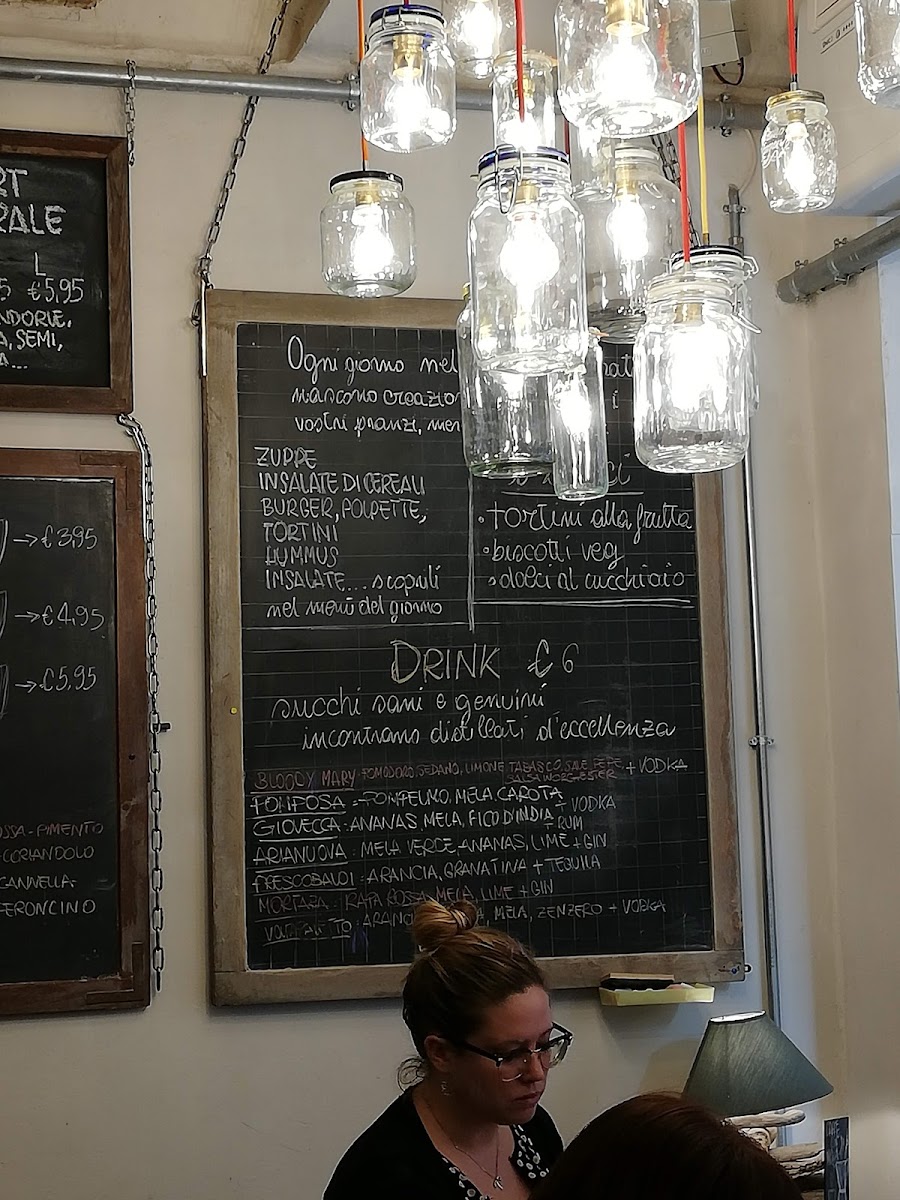 RT
RALE
L
5 €5,95
NDORLE,
A, SEMI,
A...
→€3,95
→€4,95
→€5,95
OSSA-PIMENTO
CORIANDOLO
CANNELLA-
PERONCINO
Ogni giorno nel
nascono creazion
vostri pranzi, mer
ZUPPE
INSALATE DI CEREALI
BURGER, POLPETTE,
TORTINI
HUMMUS
INSALATE... scoprili
nel menù del giorno
• tortini alla frutta
• biscotti veg
• dolci al cucchiaio
DRINK €6
succhi sani e genuini
incontrano distillati d'eccellenza
BLOODY MARY POMODORO, SEDANO, LIMONE TABASCO, SALE, PEPE + VODKA
SALSA WORCHESTER
POMPOSA : POMPELMO, MELA, CAROTA + VODKA
GIOVECCA: ANANAS, MELA, FICO D'INDIA + RUM
ARIANUOVA : MELA VERDE, ANANAS, LIME + GIN
FRESCOBALDI : ARANCIA, GRANATINA + TEQUILA
MORTARA : RAPA ROSSA, MELA, LIME + GIN
MELA, ZENZERO + VODKA